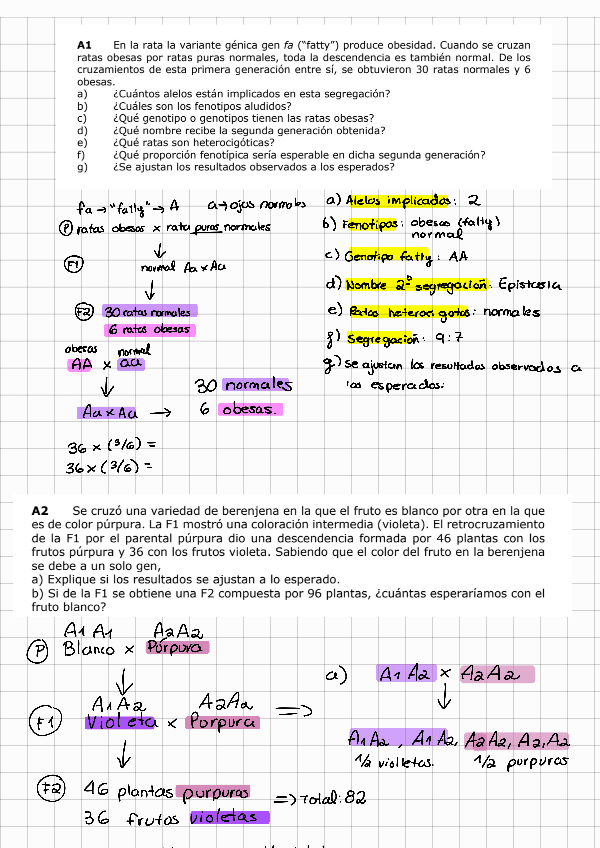 A1 En la rata la variante génica gen fa (“fatty”) produce obesidad. Cuando se cruzan
ratas obesas por ratas puras normales, toda la descendencia es también normal. De los
cruzamientos de esta primera generación entre sí, se obtuvieron 30 ratas normales y 6
obesas.
a) ¿Cuántos alelos están implicados en esta segregación?
b) ¿Cuáles son los fenotipos aludidos?
c) ¿Qué genotipo o genotipos tienen las ratas obesas?
d) ¿Qué nombre recibe la segunda generación obtenida?
e) ¿Qué ratas son heterocigóticas?
f) ¿Qué proporción fenotípica sería esperable en dicha segunda generación?
g) ¿Se ajustan los resultados observados a los esperados?
fa → "fatty" → A a → ojos normales
P ratas obesas x rata puras normales
F1 normal Aa x Aa
F2 30 ratas normales
6 ratas obesas
obesas normal
AA x aa
Aa x Aa → 30 normales
6 obesas.
36 x (3/6) =
36 x (3/6) =
a) Alelos implicados: 2
b) Fenotipos: obesas (fatty)
normal
c) Genotipo fatty: AA
d) Nombre 2º segregación: Epistasia
e) Ratas heterocigotas: normales
f) Segregación: 9:7
g) se ajustan los resultados observados a
los esperados:
A2 Se cruzó una variedad de berenjena en la que el fruto es blanco por otra en la que
es de color púrpura. La F1 mostró una coloración intermedia (violeta). El retrocruzamiento
de la F1 por el parental púrpura dio una descendencia formada por 46 plantas con los
frutos púrpura y 36 con los frutos violeta. Sabiendo que el color del fruto en la berenjena
se debe a un solo gen,
a) Explique si los resultados se ajustan a lo esperado.
b) Si de la F1 se obtiene una F2 compuesta por 96 plantas, ¿cuántas esperaríamos con el
fruto blanco?
A1 A1 A2A2
P Blanco x Púrpura
A1A2 A2A2
F1 Violeta x Porpura =>
F2 46 plantas purpuras => Total: 82
36 frutos violetas
a) A1 A2 x A2A2
A1A2, A1A2, A2A2, A2,A2
1/2 violletas. 1/2 purpuras